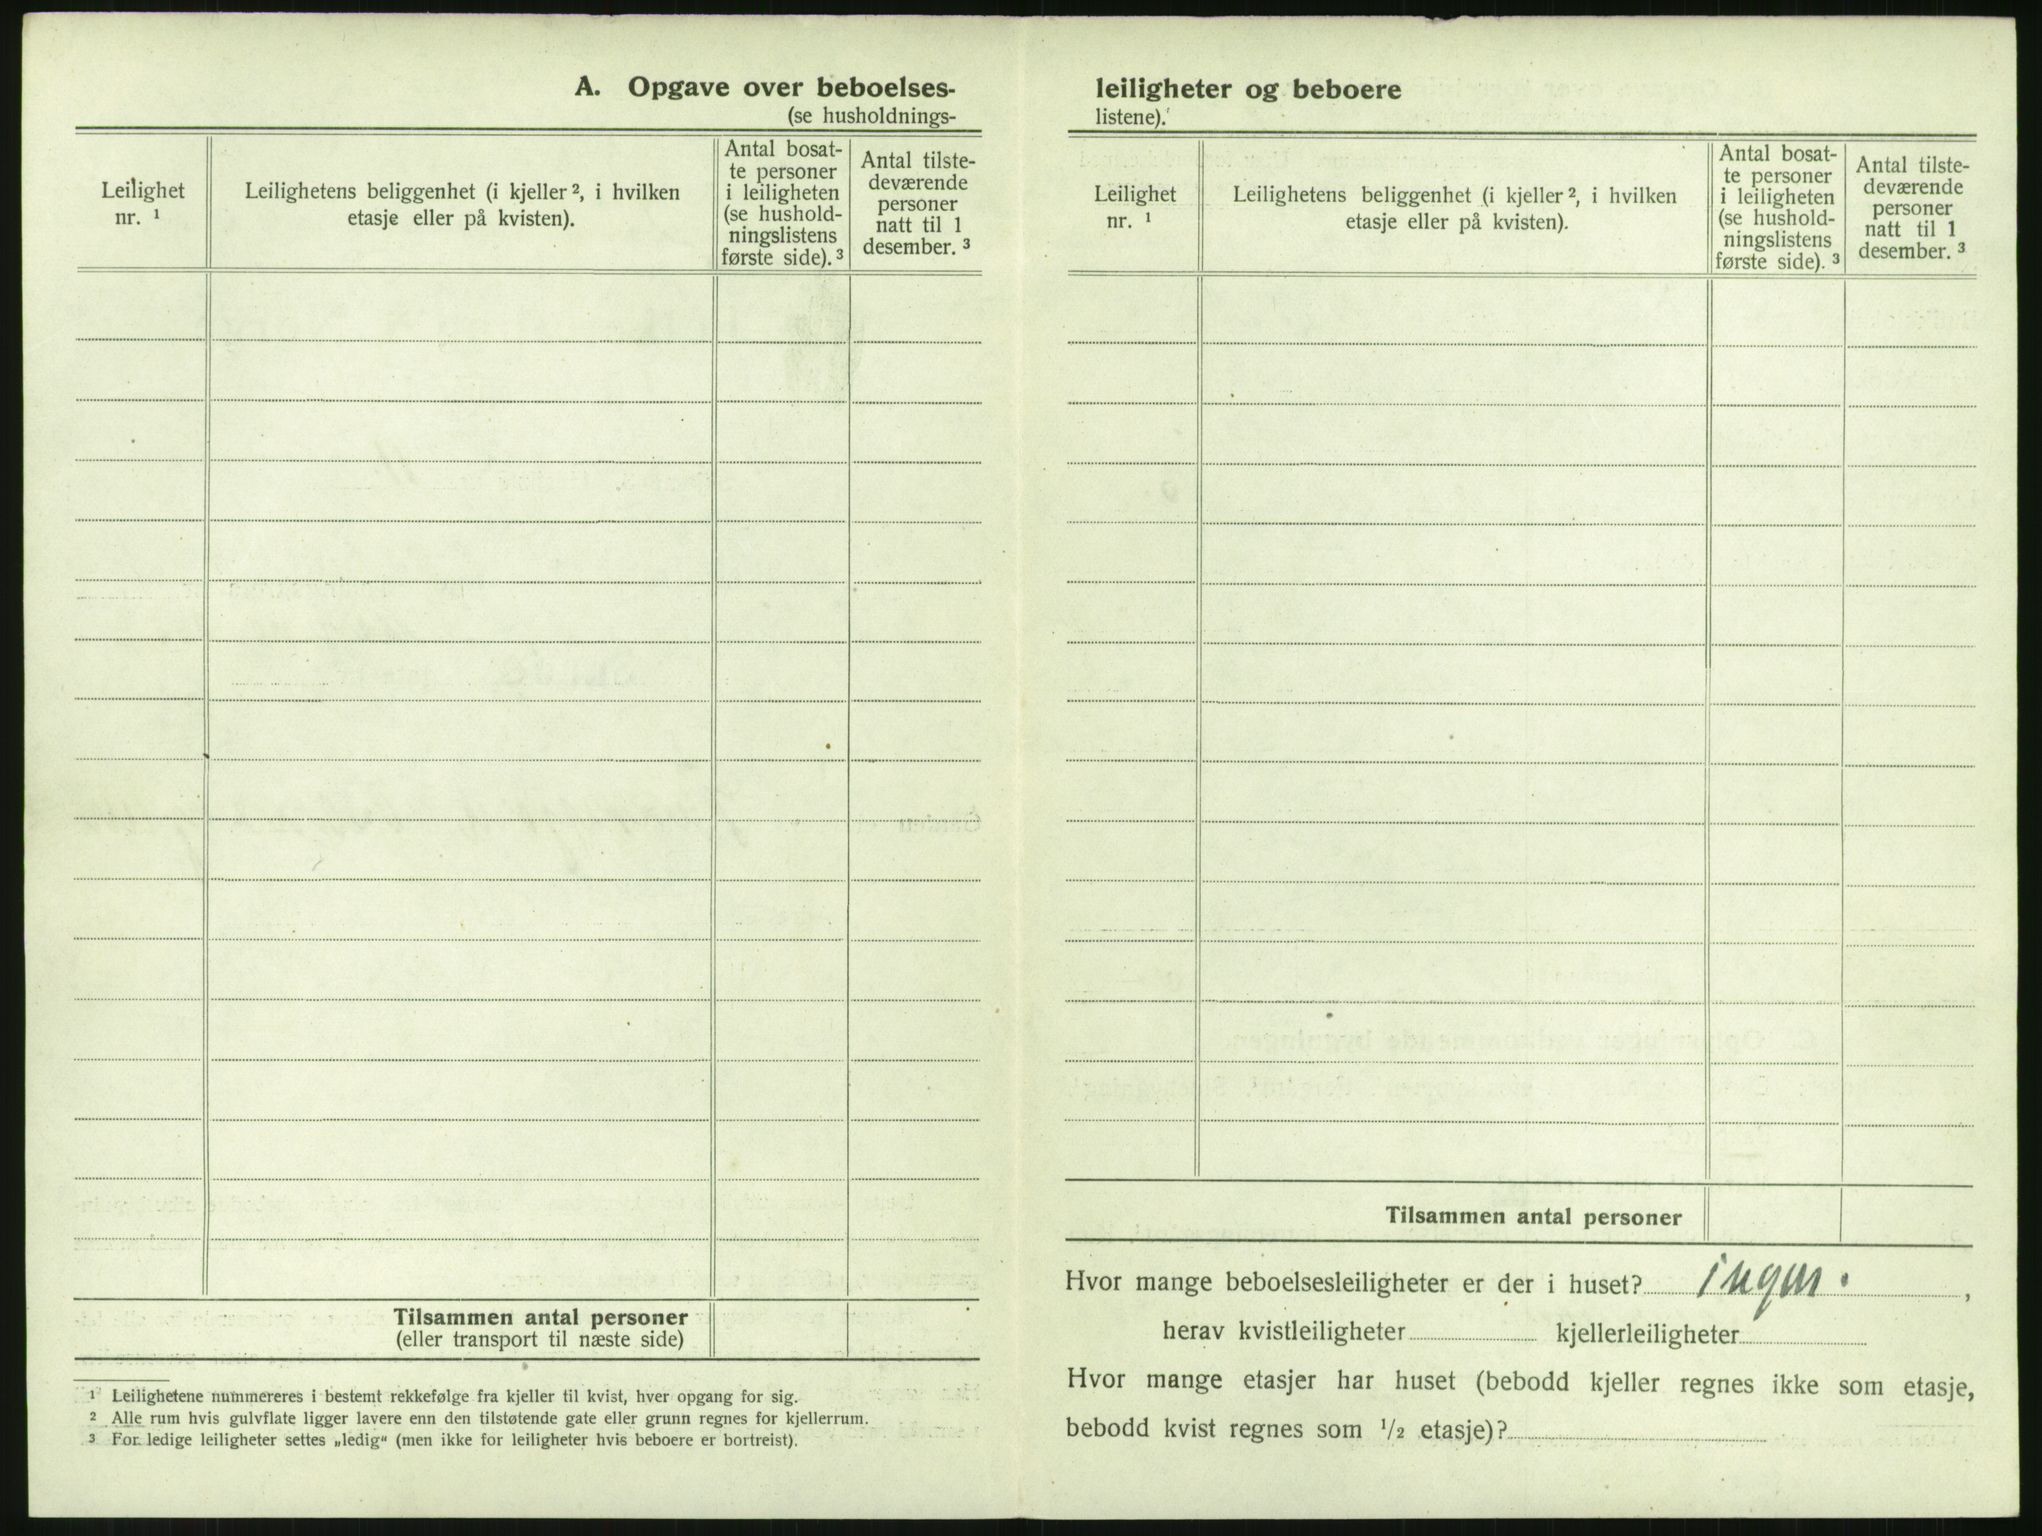 A. Opgave over beboelses-
(se husholdnings-
Leilighet
nr. ¹
Leilighetens beliggenhet (i kjeller ², i hvilken
etasje eller på kvisten).
Antal bosat-
te personer
i leiligheten
(se hushold-
ningslistens
første side). ³
Antal tilste-
deværende
personer
natt til 1
desember. ³
Tilsammen antal personer
(eller transport til næste side)
¹ Leilighetene nummereres i bestemt rekkefølge fra kjeller til kvist, hver opgang for sig.
² Alle rum hvis gulvflate ligger lavere enn den tilstøtende gate eller grunn regnes for kjellerrum.
³ For ledige leiligheter settes „ledig“ (men ikke for leiligheter hvis beboere er bortreist).
leiligheter og beboere
listene).
Leilighet
nr. ¹
Leilighetens beliggenhet (i kjeller ², i hvilken
etasje eller på kvisten).
Antal bosat-
te personer
i leiligheten
(se hushold-
ningslistens
første side). ³
Antal tilste-
deværende
personer
natt til 1
desember. ³
Tilsammen antal personer
Hvor mange beboelsesleiligheter er der i huset? ingen.,
herav kvistleiligheter kjellerleiligheter
Hvor mange etasjer har huset (bebodd kjeller regnes ikke som etasje,
bebodd kvist regnes som ¹/₂ etasje)?